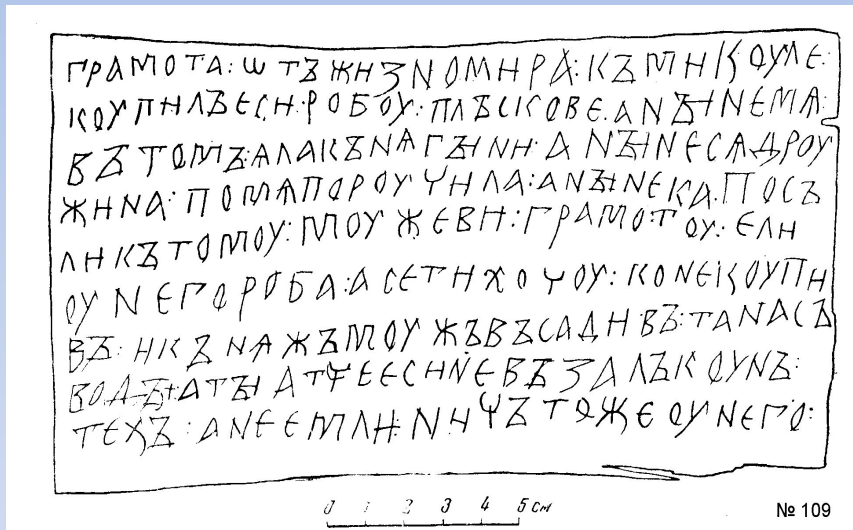 грамота : ѡтъ жизномира : къ микоуле :
коупилъ еси : робоу : плъскове : а нꙑне мѧ :
въ томъ : ѧла кънѧгꙑни : а нꙑне сѧ дроу
жина : по мѧ пороучила : а нꙑне ка : посъ
ли къ томоу : моужеви : грамотоу : ели
оу него роба : а се ти хочоу : коне коупи
въ : и кънѧжъ моужъ въсадивъ : та на съ
водꙑ : а тꙑ атче еси не възалъ коунъ :
техъ : а не емли : ничъ тоже оу него :
0 1 2 3 4 5 см
№ 109